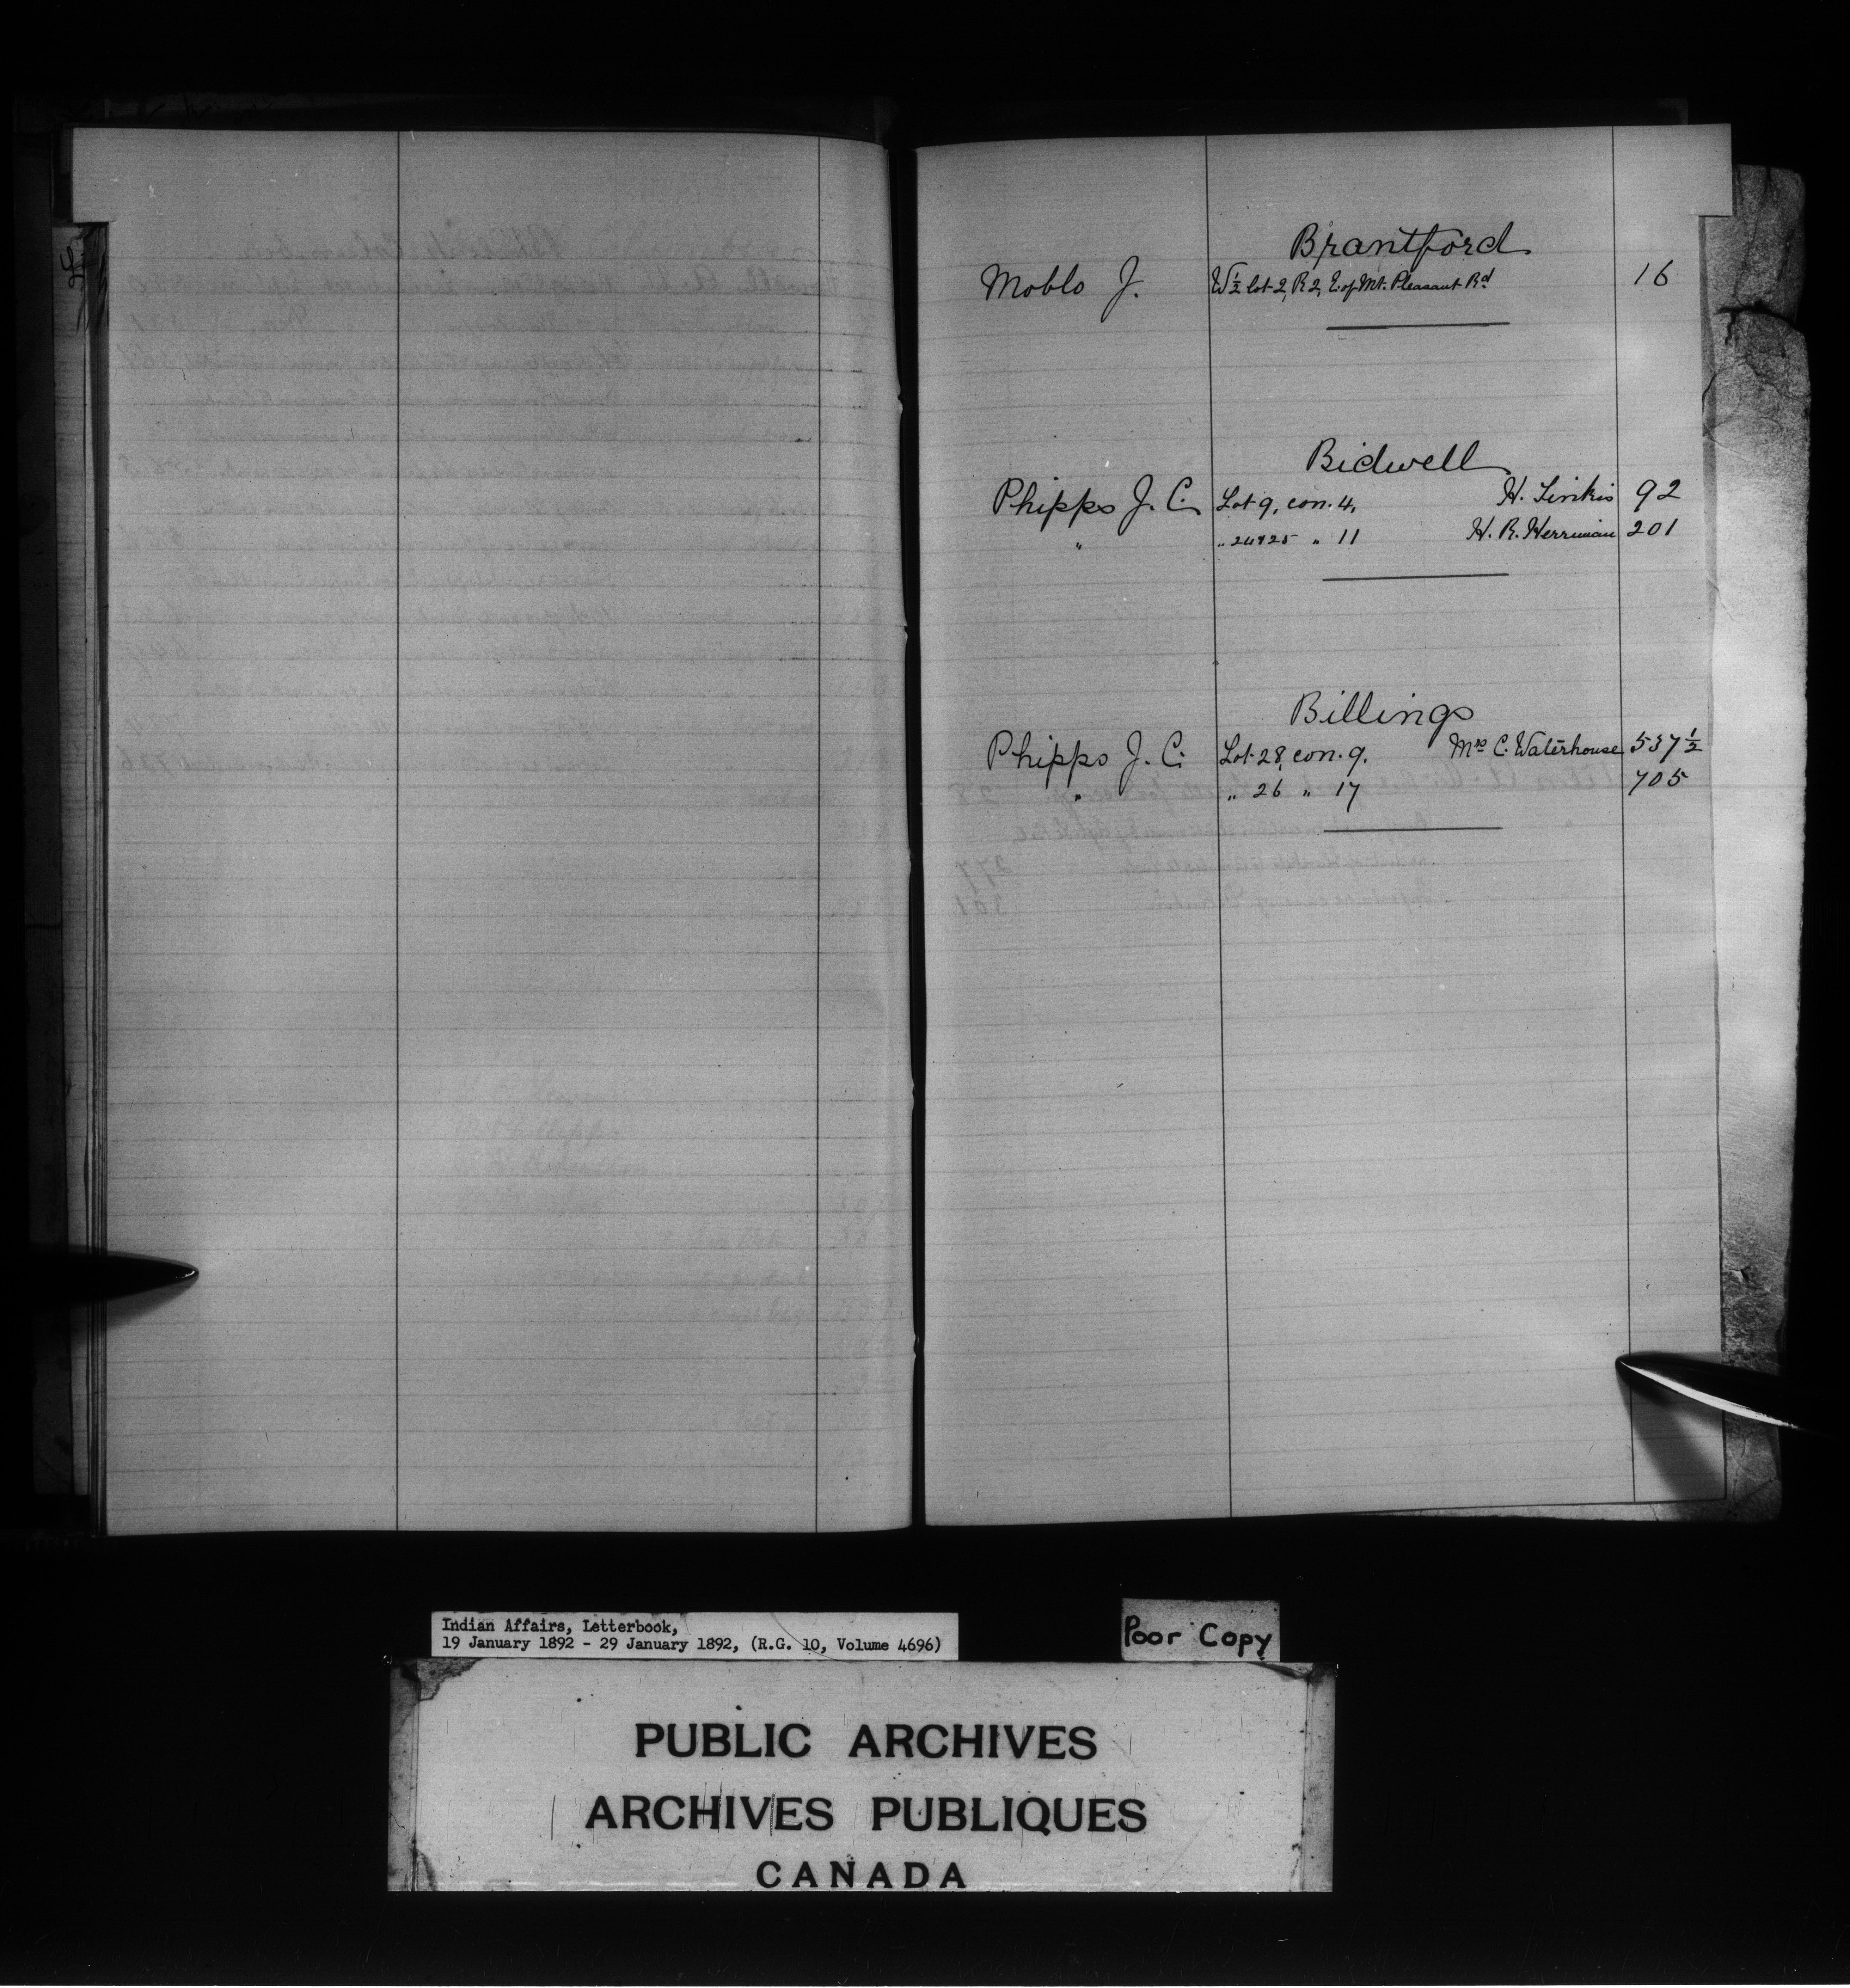 Brantford
Moblo J. W ½ lot 2, R 2, E. of Mt. Pleasant Rd 16
Bidwell
Phipps J. C. Lot 9, con. 4, H. 92
" " 24 & 25 " 11 H. R. Herriman 201
Billings
Phipps J. C. Lot 28, con. 9. Mrs C. Waterhouse 537 ½
" " 26 " 17 705
Indian Affairs, Letterbook,
19 January 1892 - 29 January 1892, (R.G. 10, Volume 4696)
Poor Copy
PUBLIC ARCHIVES
ARCHIVES PUBLIQUES
CANADA